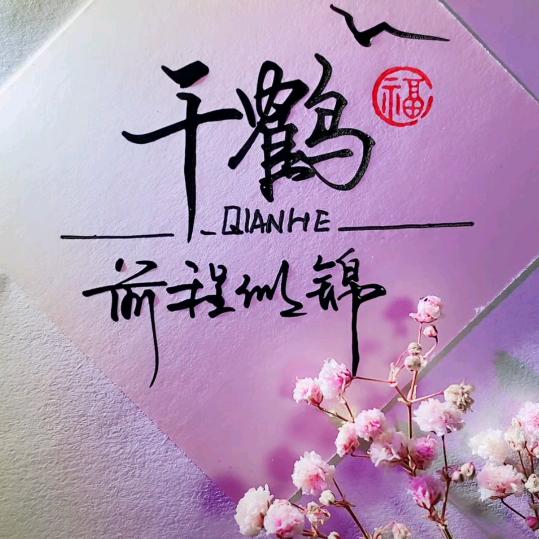 千鹤
福
QIANHE
前程似锦